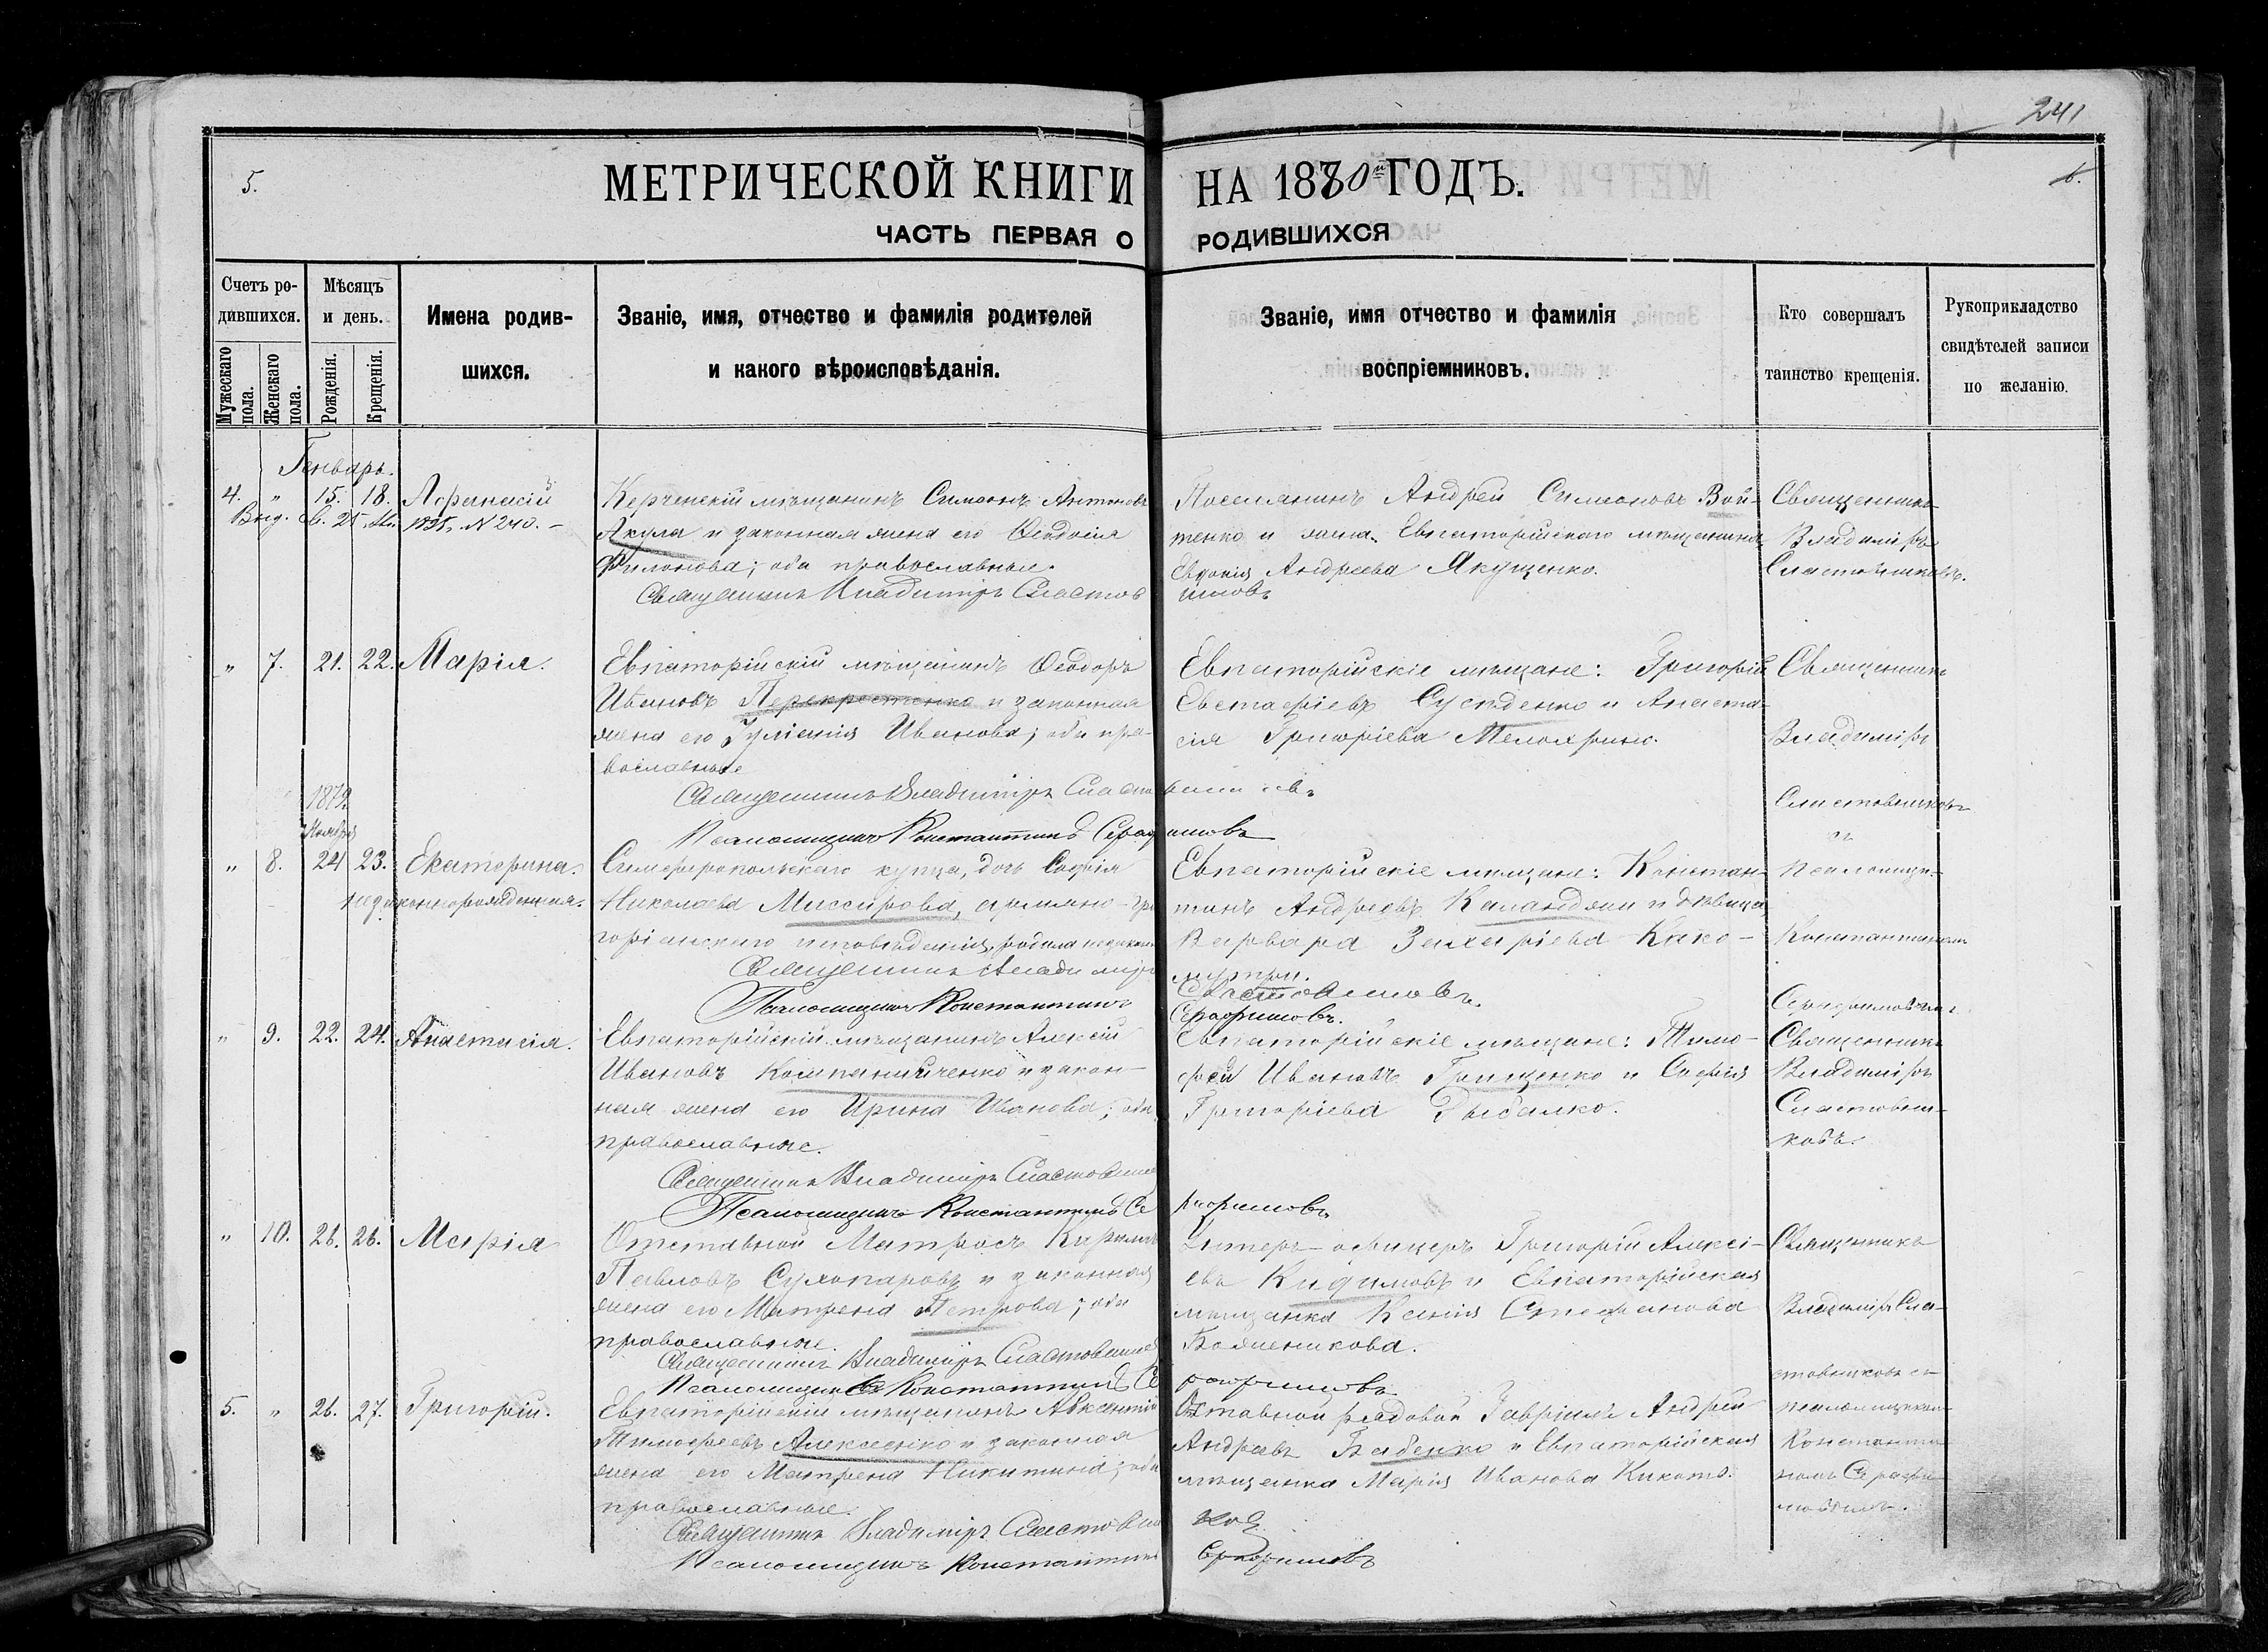 241
5.
МЕТРИЧЕСКОЙ КНИГИ НА 1880й ГОДЪ.
6.
ЧАСТЬ ПЕРВАЯ О РОДИВШИХСЯ
Счетъ ро-
дившихся.
Мужескаго пола.
Женскаго пола.
Мѣсяцъ
и день.
Рожденія.
Крещенія.
Имена родив-
шихся.
Званіе, имя, отчество и фамилія родителей
и какого вѣроисповѣданія.
Званіе, имя отчество и фамилія
воспріемниковъ.
Кто совершалъ
таинство крещенія.
Рукоприкладство
свидѣтелей записи
по желанію.
Генварь.
4. " 15. 18. Афанасій
Выд. св. 25 № 240.
Керченскій мѣщанинъ Симеонъ Антоновъ
Акула и законная жена его Ѳеодосія
Филонова; оба православные.
Священникъ Владиміръ Сластов
Поселянинъ Андрей Симеоновъ Вой-
тенко и Евпаторійскаго мѣщанина
Евдокія Андреева Якущенко.
Священникъ
Владиміръ
Сластовниковъ.
" 7. 21. 22. Марія.
Евпаторійскій мѣщанинъ Ѳеодоръ
Ивановъ Перекрестенко и законная
жена его Іуліанія Иванова; оба пра-
вославные
Священникъ Владиміръ Сласто
Псаломщикъ Константинъ Сераф имовъ
Евпаторійскіе мѣщане: Григорій
Евстафіевъ и Анаста-
сія Григоріева
Священникъ
Владиміръ
Сластовниковъ
съ
1879.
Ноября
" 8. 24 23. Екатерина.
незаконнорожденная.
Симферопольскаго купца, дочь Софія
Николаева Миссирова, армяно-гри
горіанскаго исповѣданія, родила незакон
Священникъ Владиміръ
Псаломщикъ Константинъ
Евпаторійскіе мѣщане: Констан-
тинъ Андреевъ и дѣвица
Варвара Захаріева Како-
Серафимовъ.
псаломщи-
Константиномъ
Серафимовымъ
" 9. 22. 24. Анастасія.
Евпаторійскій мѣщанинъ Алексій
Ивановъ Компанійченко и закон-
ная жена его Ирина Иванова; оба
православные.
Священникъ Владиміръ Сластовник
Псаломщикъ Константинъ Се рафимовъ
Евпаторійскіе мѣщане: Тимо-
фей Ивановъ Грищенко и Софія
Григоріева Рыбалко.
Священникъ
Владиміръ
Сластовни-
ковъ.
" 10. 26. 26. Марія
Отставной Матросъ Кирилъ
Павловъ Сухопаровъ и законная
жена его Матрена Петрова; оба
православные.
Священникъ Владиміръ Сластовник
Псаломщикъ Константинъ Се рафимовъ
Унтеръ-офицеръ Григорій Алексі-
евъ и Евпаторійская
мѣщанка Ксенія Стефанова
Боженикова.
Священникъ
Владиміръ Сла-
стовниковъ съ
5. " 26. 27. Григорій.
Евпаторійскій мѣщанинъ Авксентій
Тимофеевъ Алексеенко и законная
жена его Матрена Никитина; оба
православные.
Священникъ Владиміръ Сластовни ковъ
Псаломщикъ Константинъ Серафимовъ
Отставной рядовой Гавріилъ Андрей
Андреевъ Бабенко и Евпаторійская
мѣщанка Марія Иванова
псаломщиком
Константи-
номъ Серафи-
мовымъ.